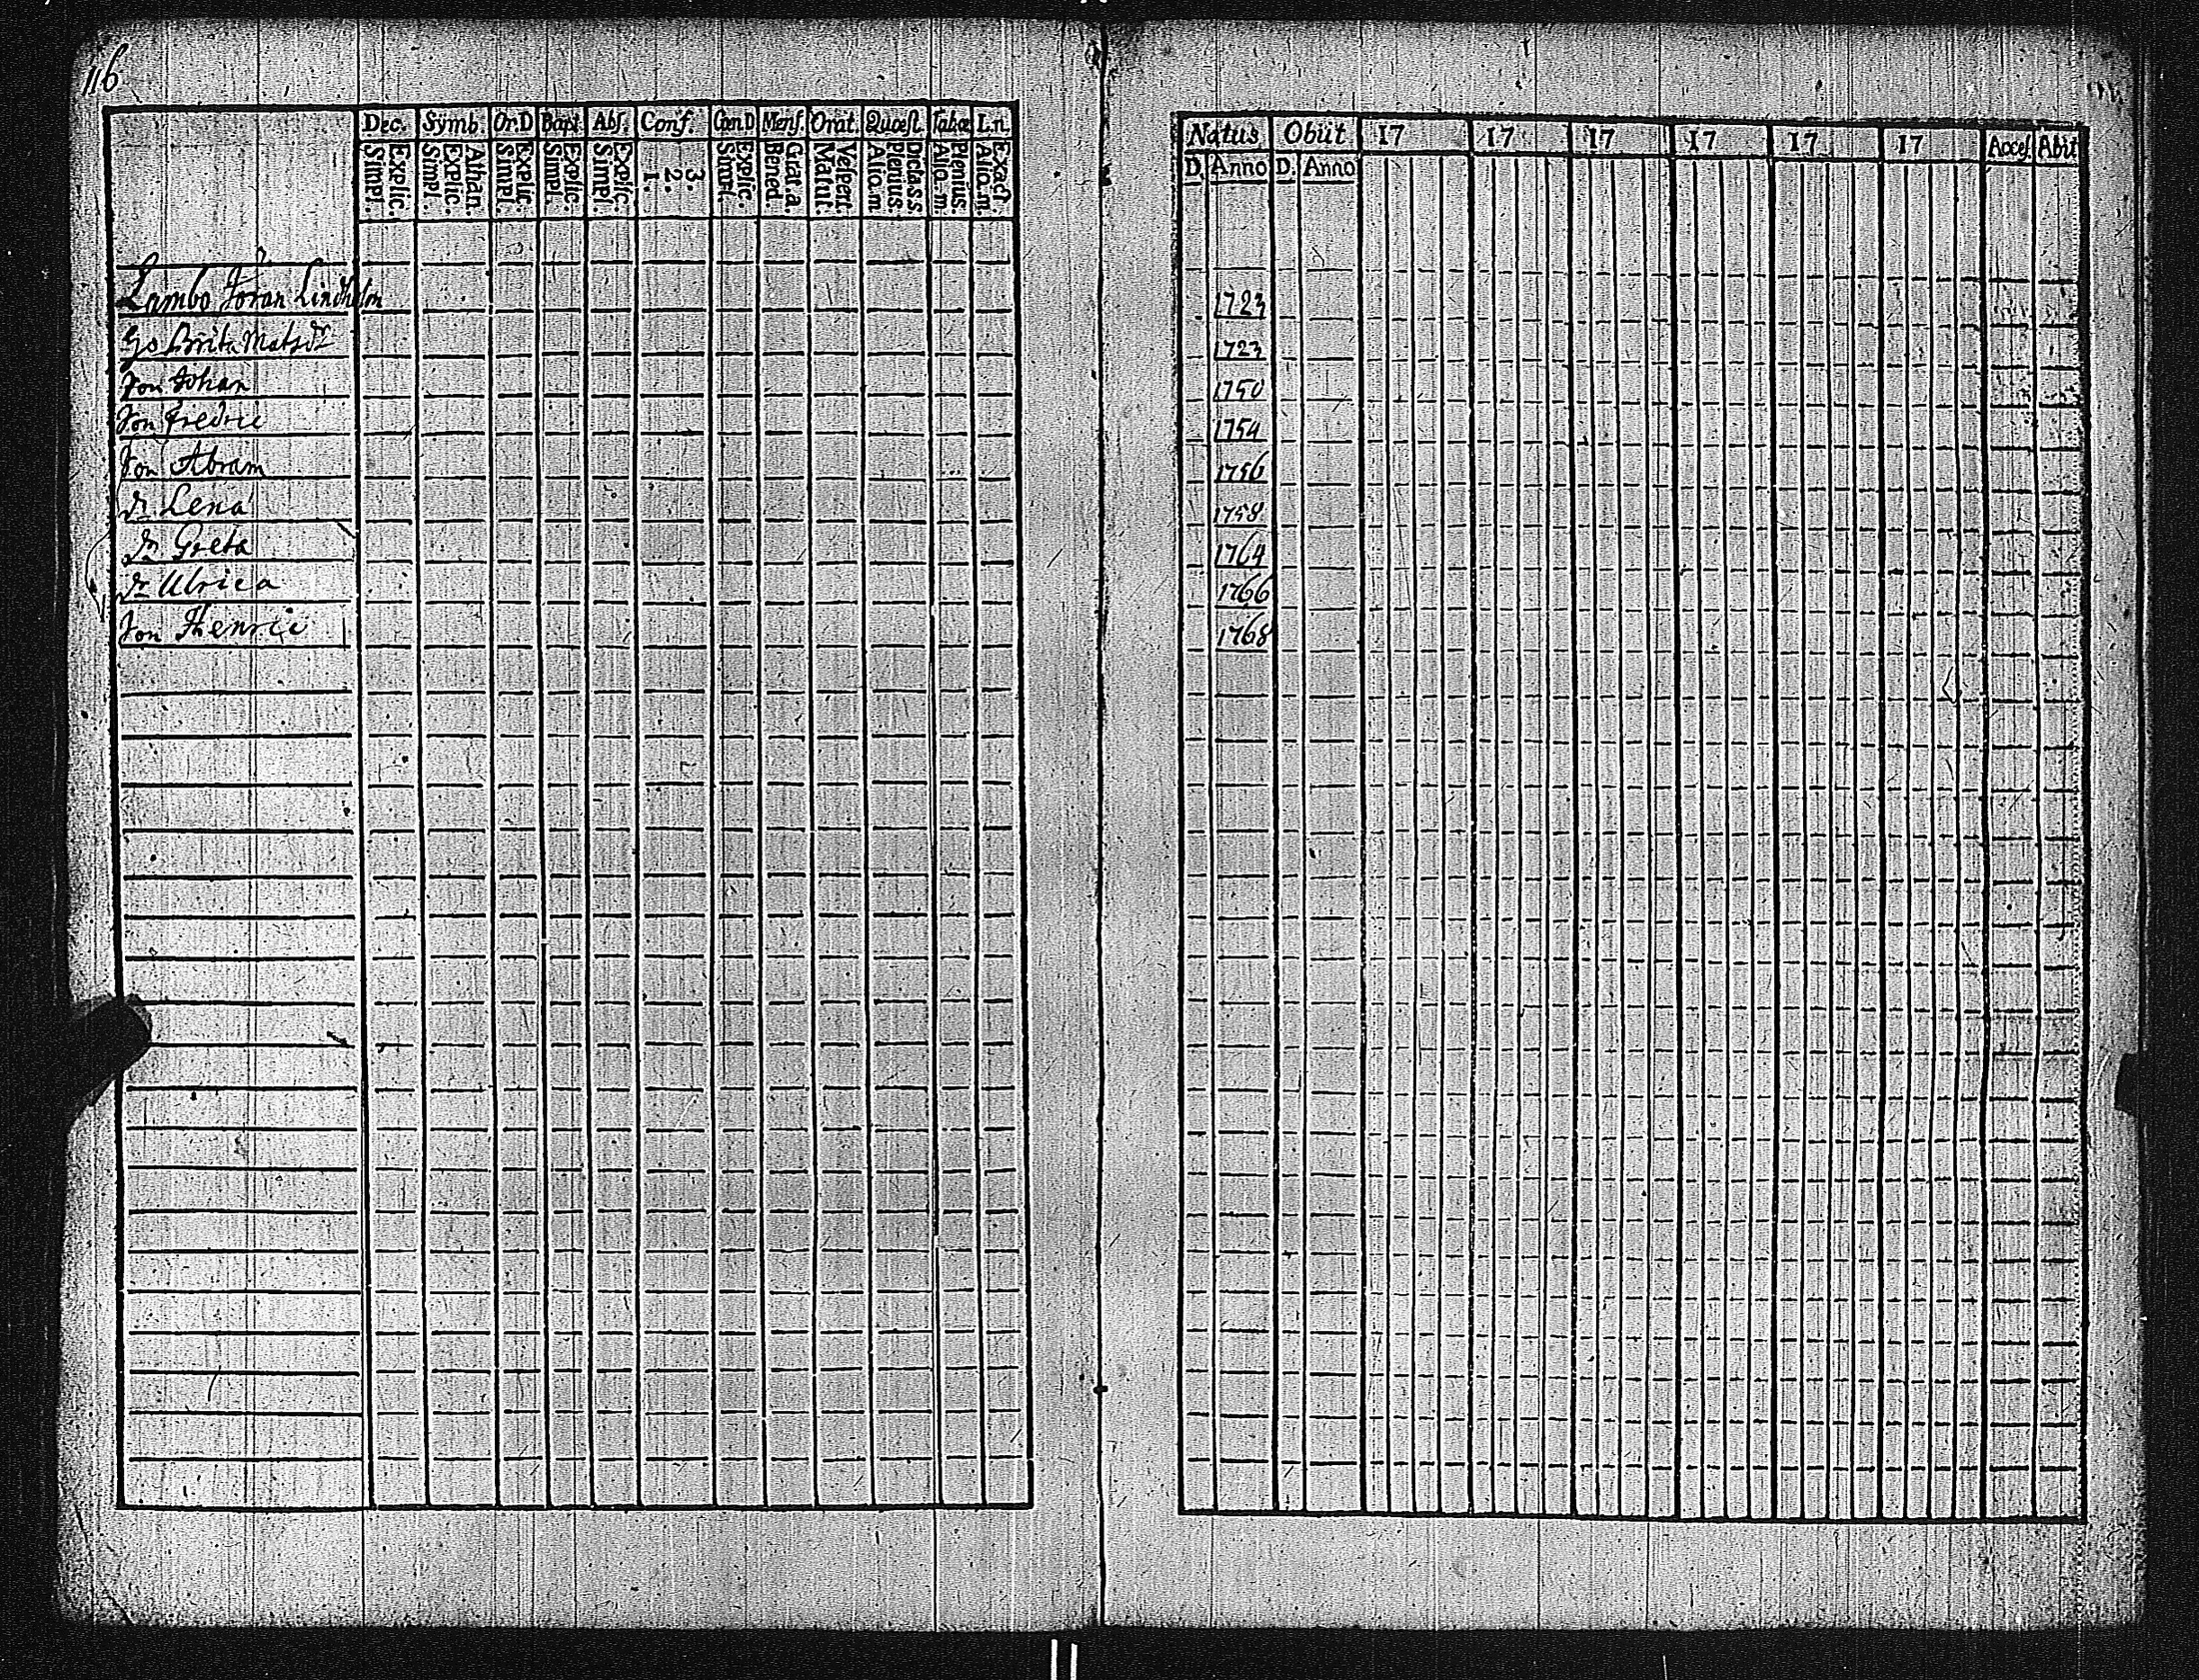 116
Dec. Symb. Or.D Bapt. Abs. Conf. Cœn.D Mens. Orat. Quœst. Tabœ I.n.
Simpl. Explic. Simpl. Explic. Athan. Simpl. Explic. Simpl. Explic. Simpl. Explic. 1. 2. 3. Simpl. Explic. Bened. Grat.a. Matut. Vespert. Alio.m Plenius. Dicta.s.s Alio.m Plenius. Alio.m. Exact.
Natus Obiit 17 17 17 17 17 17 Acces. Abit
D. Anno D. Anno
Lambo Jöran Lindholm 1723
Brita Matsdr 1723
Son Johan 1750
Son Fredric 1754
Son Abram 1756
Dr Lena 1758
Dr Greta 1764
Dr Ulrica 1766
Son Henric 1768